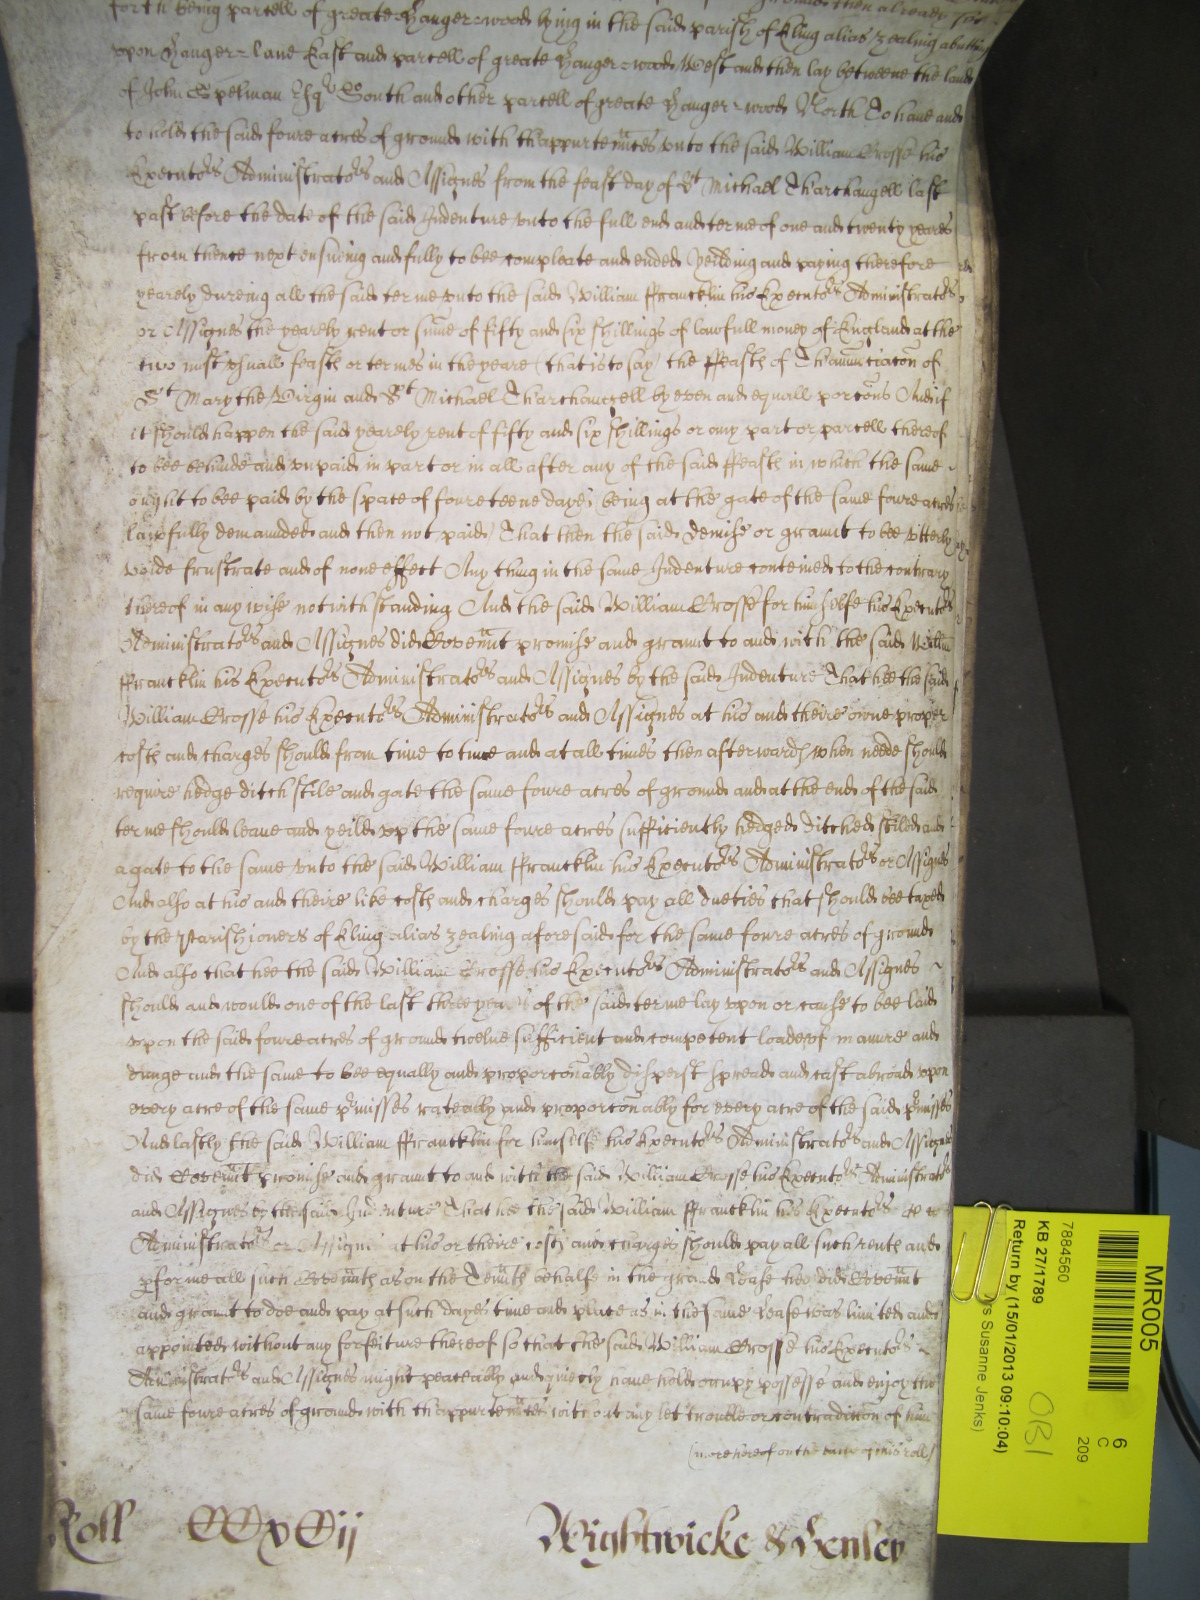 forth being parcell of greate Hanger=wood lying in the said parish of Eling alias Zealing abutting
vpon Hanger=lane East and parcell of greate Hanger=wood West and then lay betweene the land
of John Spelman Esqr South and other parcell of greate Hanger=wood North To haue and
to hold the said foure acres of ground with thappurtennces vnto the said William Crosse his
Executors Administrators and Assignes from the feast day of St Michael Tharchangell last
past before the date of the said Indenture vnto the full end and terme of one and twenty yeares
from thence next ensuing and fully to bee compleate and ended Yeilding and paying therefore
yearely dureing all the said terme vnto the said William Francklin his Executors Administrators
or Assignes the yearely rent or sume of fifty and six shillings of lawfull money of England at the
two most vsuall feasts or termes in the yeare (that is to say) the ffeasts of Thannunciacon of
St Mary the Virgin and St Michael Tharchangell by even and equall porcons And if
it should happen the said yearely rent of fifty and six shillings or any part or parcell thereof
to bee behinde and vnpaid in part or in all after any of the said ffeasts in which the same
ought to bee paid by the space of fourteene dayes being at the gate of the same foure acres
lawfully demaunded and then not paid) That then the said demise or graunt to bee vtterly
voide frustrate and of none effect Any thing in the same Indenture conteined to the contrary
thereof in any wise notwithstanding And the said William Crosse for himselfe his Executors
Administrators and Assignes did Covennt promise and graunt to and with the said Willm
ffrancklin his Executors Administrators and Assignes by the said Indenture That hee the said
William Crosse his Executors Administrators and Assignes at his and theire owne proper
costs and charges should from time to time and at all times then afterwards when neede should
require hedge ditch stile and gate the same foure acres of ground and at the end of the said
terme should leaue and yeild vp the same foure acres sufficiently hedged ditched stiled and
a gate to the same vnto the said William ffrancklin his Executors Administrators or Assignes
And also at his and theire like costs and charges should pay all dueties that should bee taxed
by the Parishioners of Eling alias Zealing aforesaid for the same foure acres of ground
And also that hee the said William Crosse his Executors Administrators and Assignes
should and would one of the last three yeares of the said terme lay vpon or cause to bee laid
vpon the said foure acres of ground twelue sufficient and competent loades of manure and
dunge and the same to bee equally and proporconably disperst spread and cast abroad vpon
every acre of the same prmisses rateably and proporconably for every acre of the said prmisses
And lastly the said William ffrancklin for himselfe his Executors Administrators and Assignes
did Covennt promise and graunt to and with the said William Crosse his Executors Administrators
and Assignes by the said Indenture That hee the said William ffrancklin his Executors
Administrators or Assignes at his or theire costs and charges should pay all such rents and
performe all such Covennts as on the Tennts behalfe in the grand Lease hee did Covennt
and graunt to doe and pay at such dayes time and place as in the same Lease was limited and
appointed without any forfeiture thereof so that the said William Crosse his Executors
Administrators and Assignes might peaceably and quietly haue hold occupy possesse and enjoy the
same foure acres of ground with thappurtennces without any let trouble or contradiction of him
(more hereof on the back of this roll)
Roll CCxCij Wightwicke & Henley
MR005
6
C
209
7884560
KB 27/1789
Return by (15/01/2013 09:10:04)
Susanne Jenks)
OBI